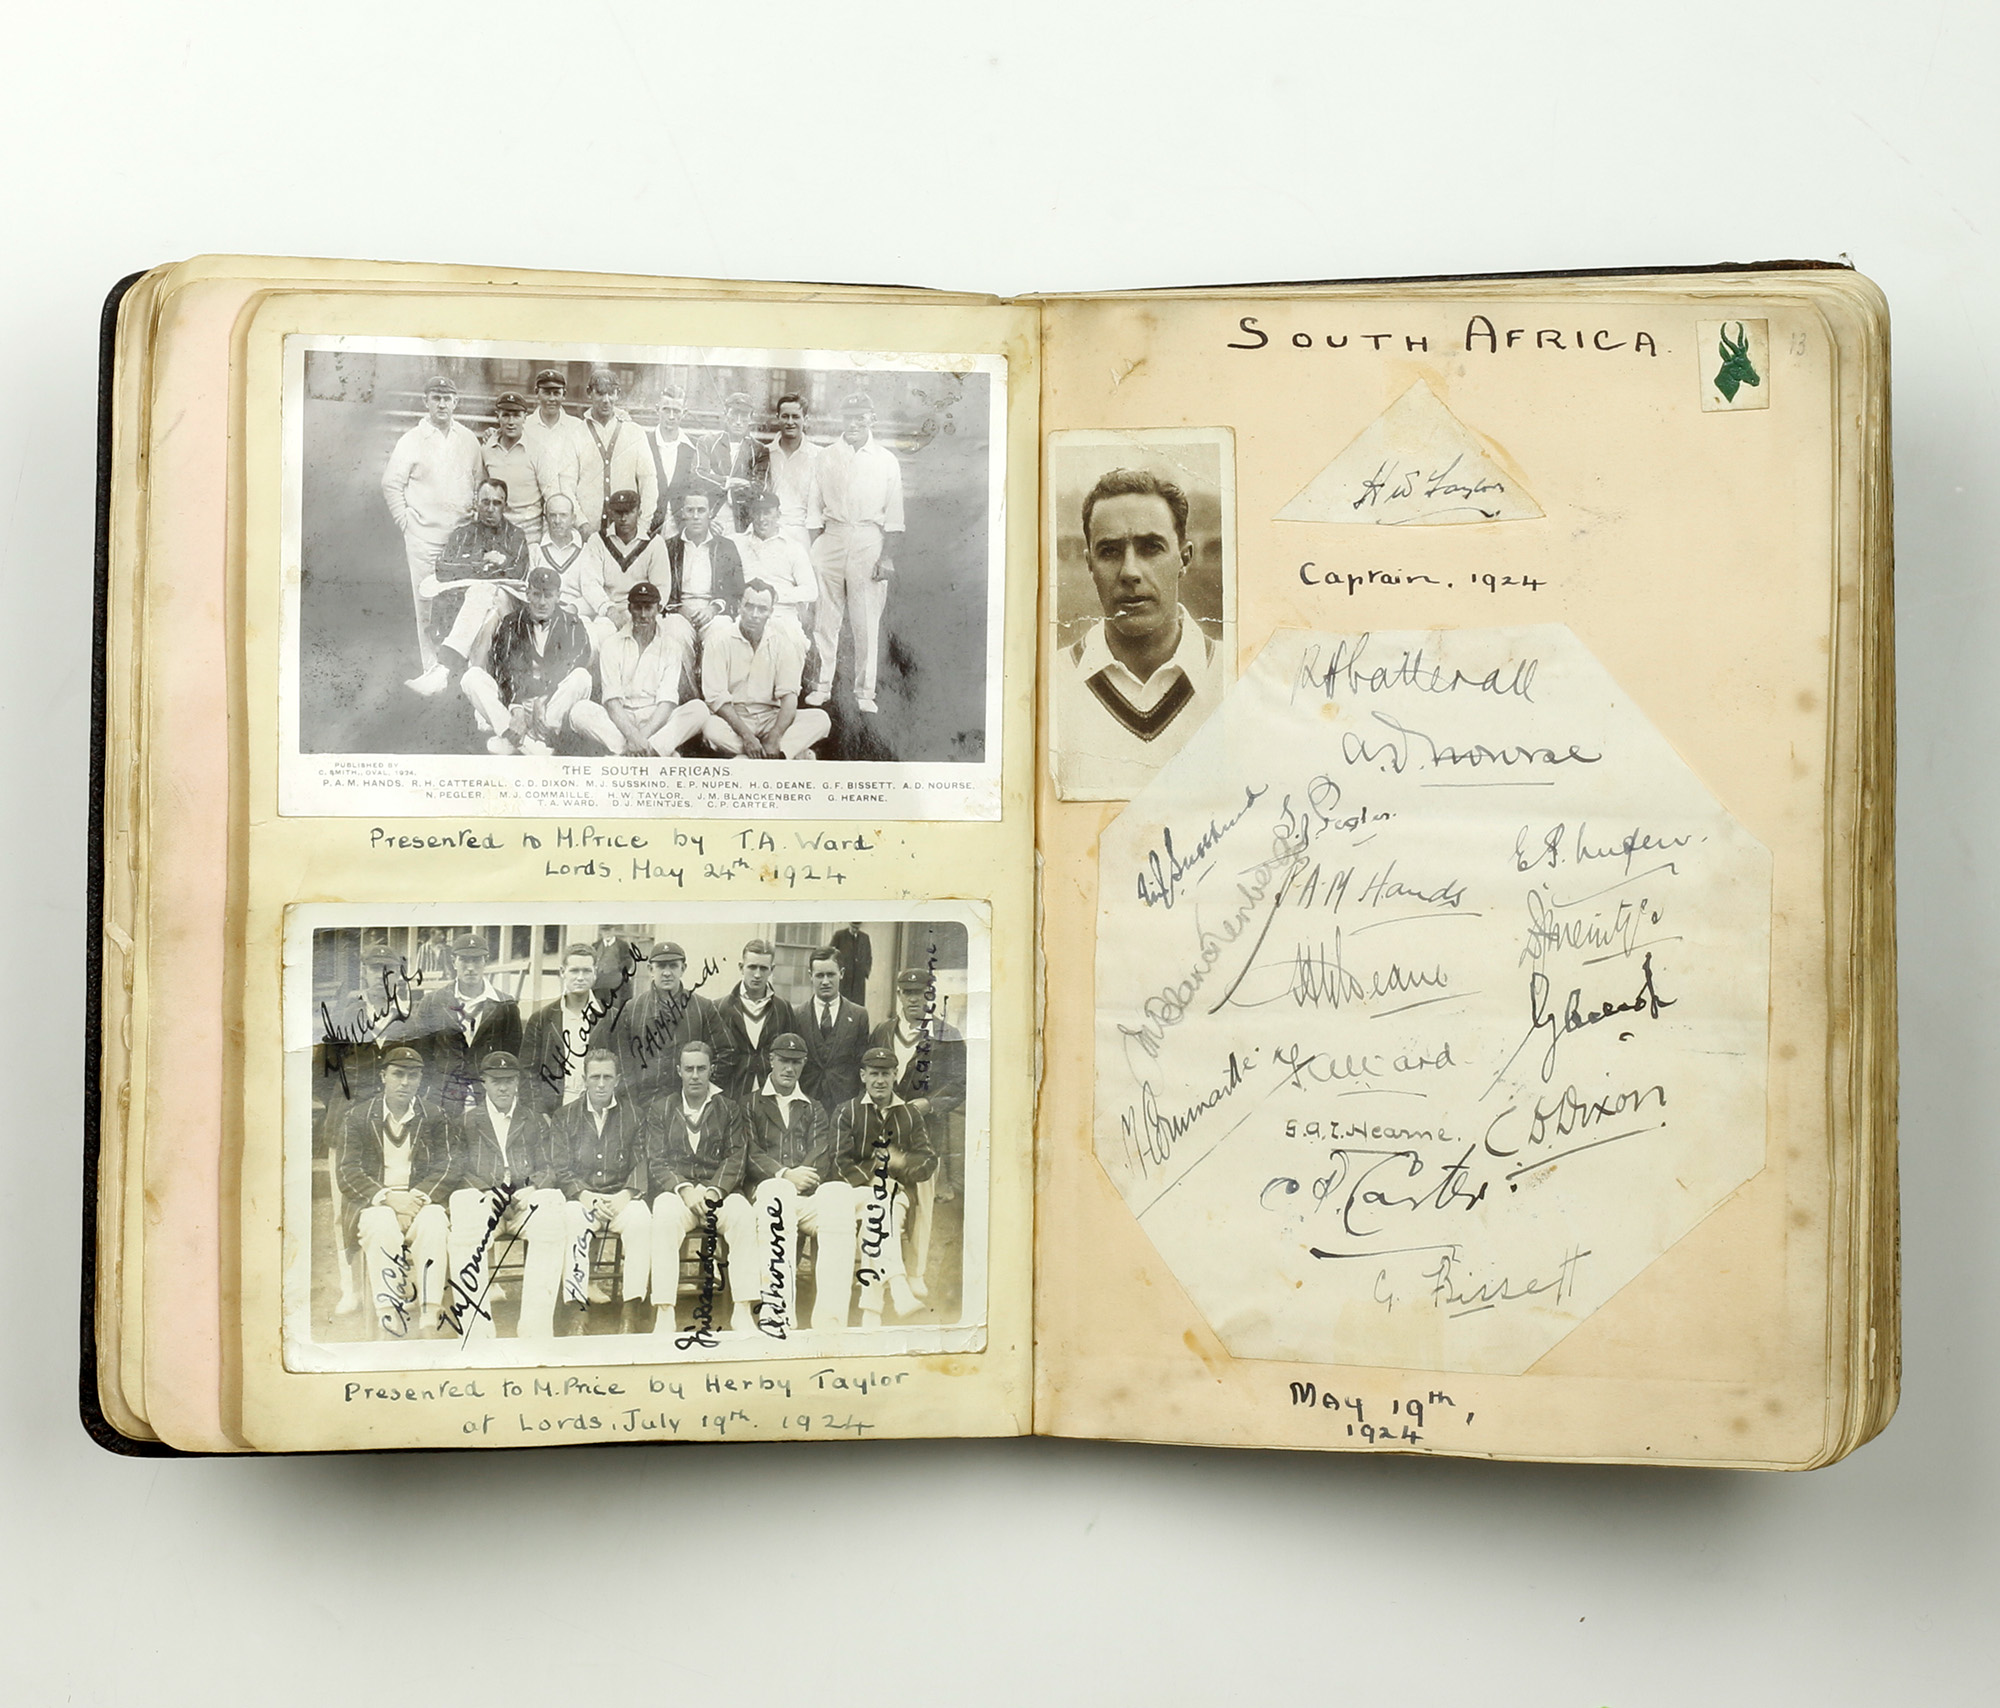 PUBLISHED BY
C. SMITH., OVAL, 1924.
THE SOUTH AFRICANS.
P.A.M. HANDS. R.H. CATTERALL. C.D. DIXON. M.J. SUSSKIND. E.P. NUPEN. H.G. DEANE. G.F. BISSETT. A.D. NOURSE.
N. PEGLER. M.J. COMMAILLE. H.W. TAYLOR. J.M. BLANCKENBERG G. HEARNE.
T.A. WARD. D.J. MEINTJES. C.P. CARTER.
Presented to M.Price by T.A. Ward
Lords, May 24th, 1924
R H Catterall
P.A.M. Hands.
G.A.L. Hearne.
C P Carter
M J Commaille
H W Taylor
J M Blanckenberg
A D Nourse
T. A Ward.
Presented to M.Price by Herby Taylor
at Lords, July 19th. 1924
SOUTH AFRICA.
13
H W Taylor
Captain. 1924
R H Catterall
A.D. Nourse
M J Susskind
S. J. Pegler.
E P. Nupen.
J M Blanckenberg
P. A. M Hands
D J Meintjes
H G Deane
M J Commaille
T A Ward
G.A.L. Hearne.
C D Dixon
C P. Carter
G. Bissett
MAY 19th,
1924